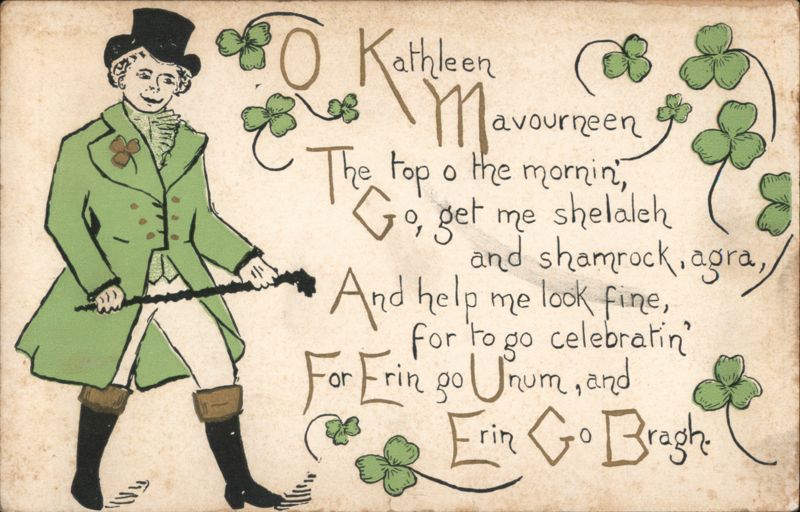 O Kathleen
Mavourneen
The top o the mornin',
Go, get me shelaleh
and shamrock, agra,
And help me look fine,
for to go celebratin'
For Erin go Unum, and
Erin Go Bragh.